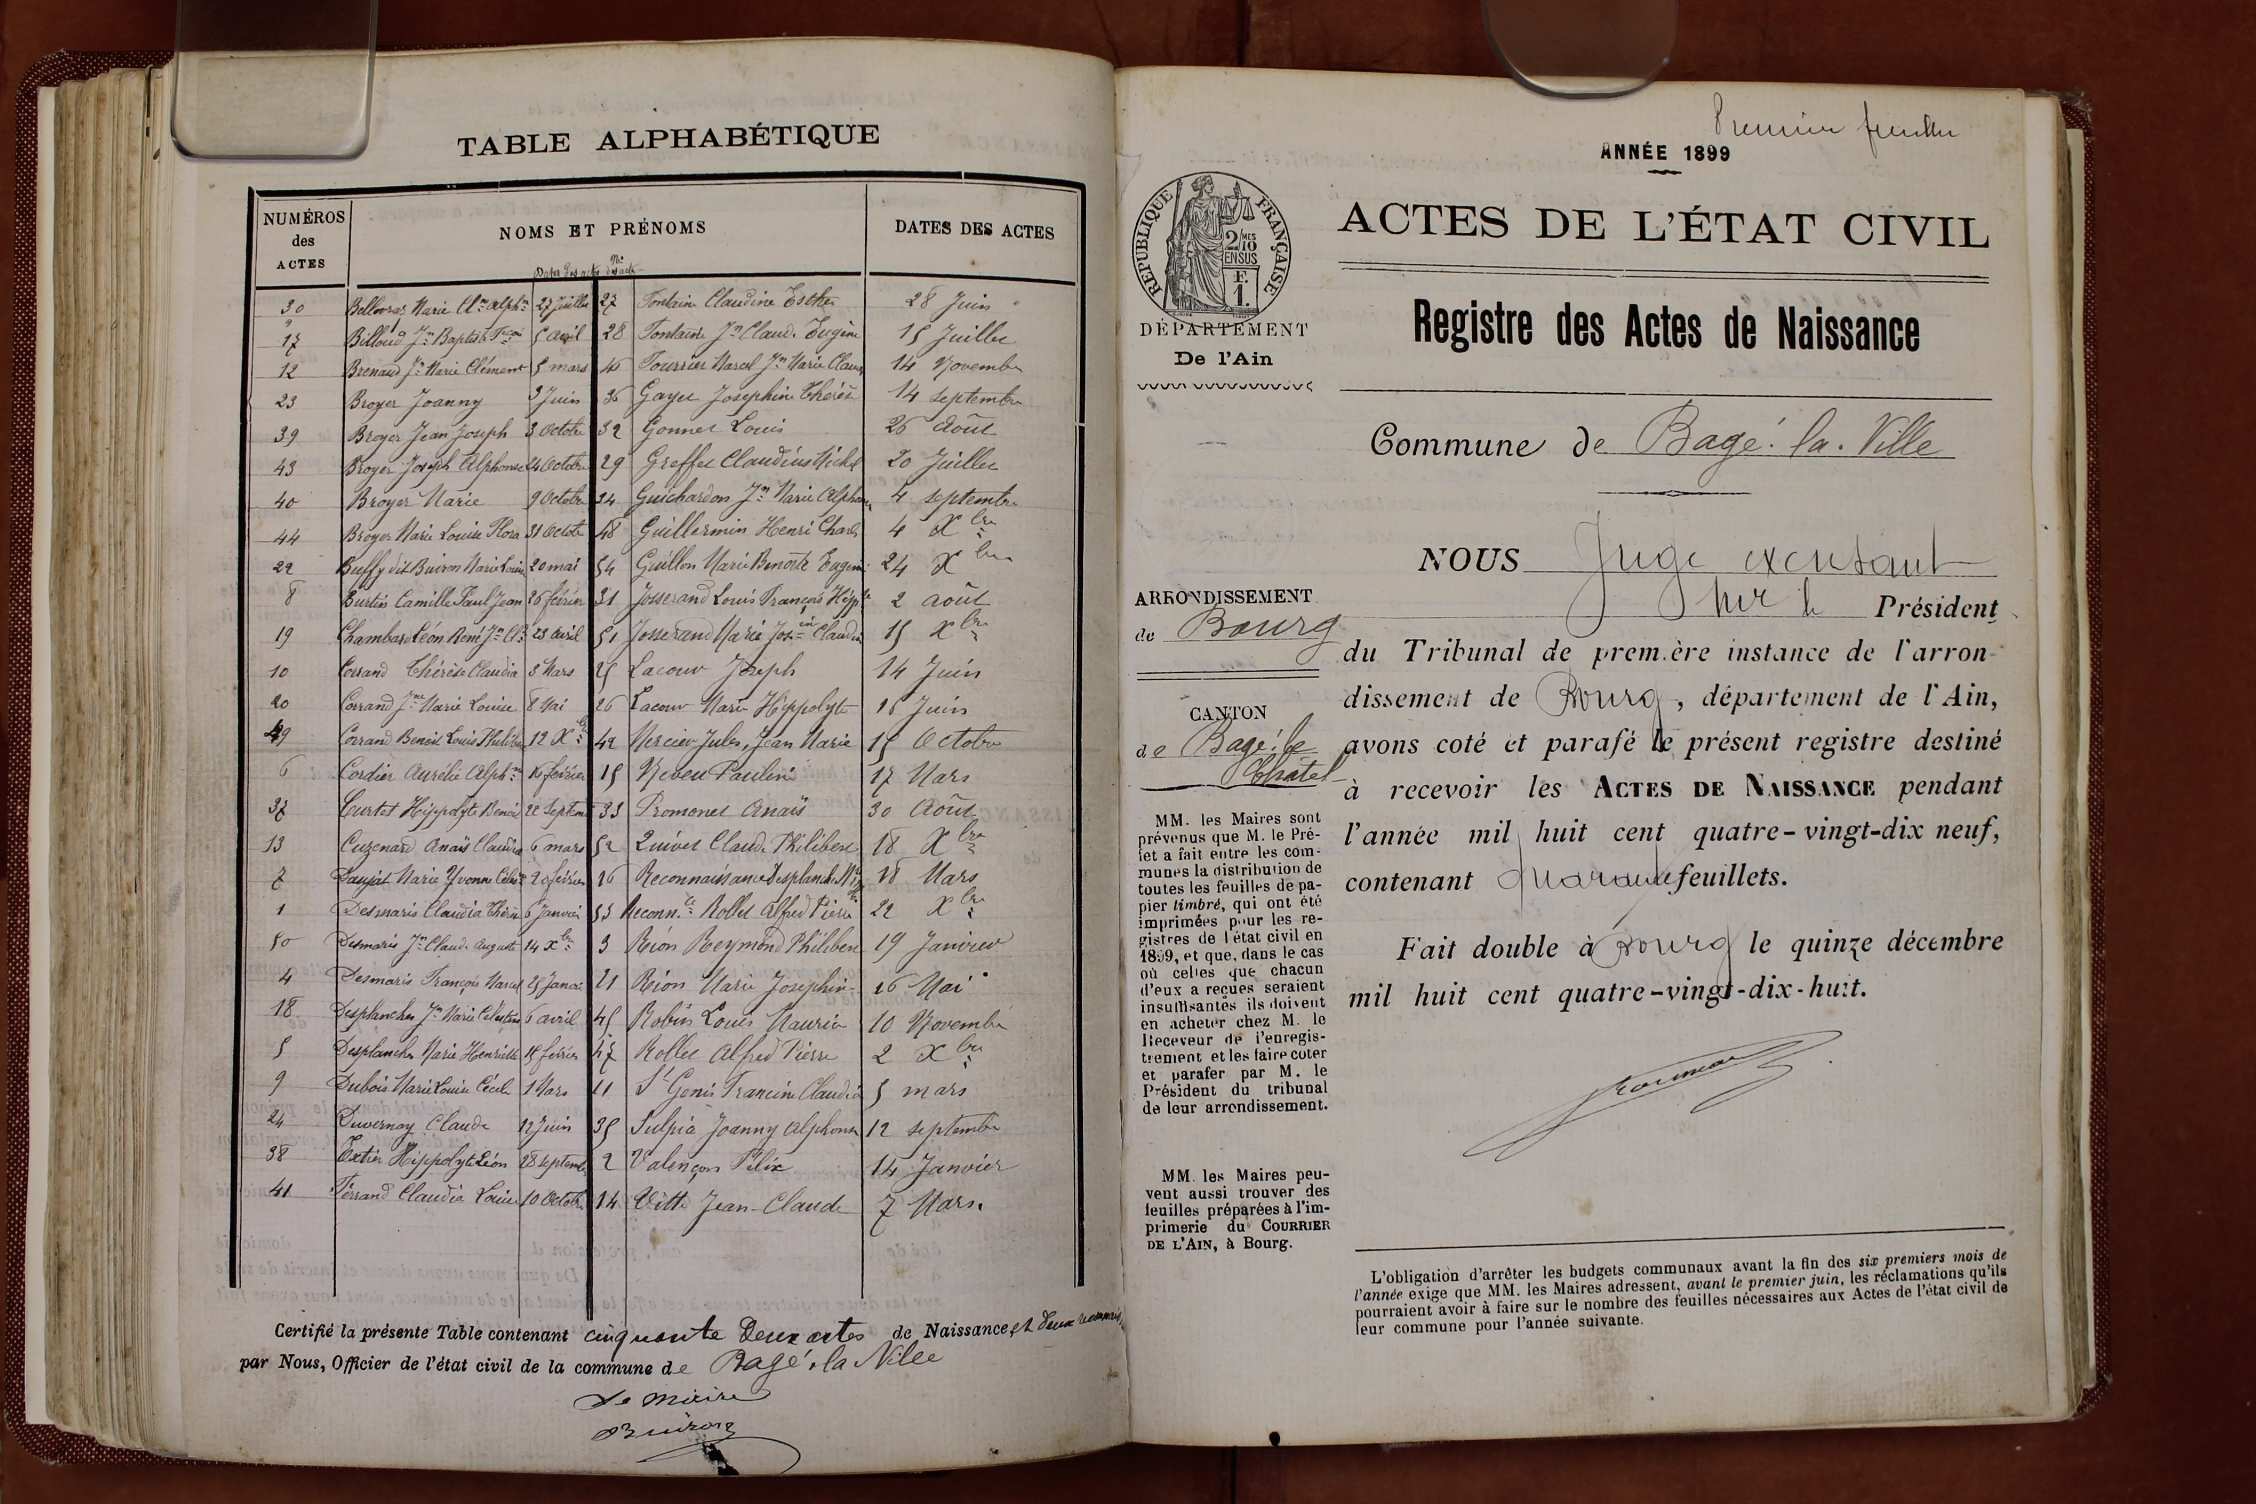 TABLE ALPHABÉTIQUE
NUMÉROS des ACTES
NOMS ET PRÉNOMS
DATES DES ACTES
Dates des actes Nos des actes
30 Belloeras Marie Cl.ne Alph.ne 27 Juillet 27 Fontaine Claudine Esther 28 Juin
17 Billoud J.n Baptiste Fçois 5 avril 28 Fontaine J.n Claude Eugène 15 Juillet
12 Brenaud J.n Marie Clément 5 mars 46 Fourrier Marcel J.n Marie Claude 14 Novembre
23 Broyer Joanny 3 Juin 36 Gayet Joséphine Thérèse 14 septembre
39 Broyer Jean Joseph 3 Octobre 32 Gonnet Louis 26 Août
43 Broyer Joseph Alphonse 24 Octobre 29 Greffet Claudius Michel 20 Juillet
40 Broyer Marie 9 Octobre 34 Guichardon J.n Marie Alphonse 4 septembre
44 Broyer Marie Louise Flora 31 Octobre 48 Guillermin Henri Charles 4 Xbre
22 Buffy dit Buiron Marie Louise 20 mai 54 Guillon Marie Benoîte Eugénie 24 Xbre
8 Burtin Camille Paul Jean 26 février 31 Josserand Louis François Hipte 2 août
19 Chambard Léon René J.n Cl. 23 avril 51 Josserand Marie Josine Claudia 15 Xbre
10 Corrand Thérèse Claudia 3 Mars 25 Lacour Joseph 14 Juin
20 Corrand J.ne Marie Louise 8 Mai 26 Lacour Marie Hippolyte 16 Juin
49 Corrand Benoît Louis Philibert 12 Xbre 42 Mercier Jules, Jean Marie 15 Octobre
6 Cordier Aurélie Alph.ne 16 février 15 Neveu Pauline 17 Mars
37 Curtet Hippolyte Benoit 22 Septembre 33 Promonet Anaïs 30 Août
13 Cuzenard Anaïs Claudia 6 mars 52 Quivet Claude Philibert 18 Xbre
7 Daujat Marie Yvonne 20 février 16 Reconnaissance Desplanche 18 Mars
1 Desmaris Claudia Thérèse 6 Janvier 53 Reconn.ce Rollet Alfred Pierre 22 Xbre
50 Desmaris J.n Claude Auguste 14 Xbre 3 Rion Reymond Philibert 19 Janvier
4 Desmaris François Marcel 25 Janvier 21 Rion Marie Joséphine 16 Mai
18 Desplanches J.n Marie Célestine 6 avril 45 Robin Louis Maurice 10 Novembre
5 Desplanches Marie Henriette 15 février 47 Rollet Alfred Pierre 2 Xbre
9 Dubois Marie Louise Cécile 1 Mars 11 St Genis Francine Claudia 5 mars
24 Duvernay Claude 12 Juin 35 Sulpice Joanny Alphonse 12 septembre
38 Extier Hippolyte Léon 28 septembre 2 Valençon Félix 14 Janvier
41 Ferrand Claudia Louise 10 Octobre 14 Vitte Jean-Claude 7 Mars.
Certifié la présente Table contenant cinquante Deux actes de Naissance, et deux reconnaiss.
par Nous, Officier de l'état civil de la commune de Bagé-la-Ville
Le Maire
Buiron
Premier feuillet
ANNÉE 1899
RÉPUBLIQUE FRANÇAISE
2/10 EN SUS
F. 1.
DÉPARTEMENT
De l'Ain
ACTES DE L'ÉTAT CIVIL
Registre des Actes de Naissance
Commune de Bagé-la-Ville
ARRONDISSEMENT
de Bourg
CANTON
de Bagé-le
Châtel
MM. les Maires sont
prévenus que M. le Pré-
fet a fait entre les com-
munes la distribution de
toutes les feuilles de pa-
pier timbré, qui ont été
imprimées pour les re-
gistres de l'état civil en
1899, et que, dans le cas
où celles que chacun
d'eux a reçues seraient
insuffisantes ils doivent
en acheter chez M. le
Receveur de l'enregis-
trement et les faire coter
et parafer par M. le
Président du tribunal
de leur arrondissement.
MM. les Maires peu-
vent aussi trouver des
feuilles préparées à l'im-
primerie du COURRIER
DE L'AIN, à Bourg.
NOUS Juge exerçant
Président
du Tribunal de première instance de l'arron-
dissement de Bourg, département de l'Ain,
avons coté et parafé le présent registre destiné
à recevoir les ACTES DE NAISSANCE pendant
l'année mil huit cent quatre-vingt-dix neuf,
contenant quarante feuillets.
Fait double à Bourg le quinze décembre
mil huit cent quatre-vingt-dix-huit.
L'obligation d'arrêter les budgets communaux avant la fin des six premiers mois de
l'année exige que MM. les Maires adressent, avant le premier juin, les réclamations qu'ils
pourraient avoir à faire sur le nombre des feuilles nécessaires aux Actes de l'état civil de
leur commune pour l'année suivante.